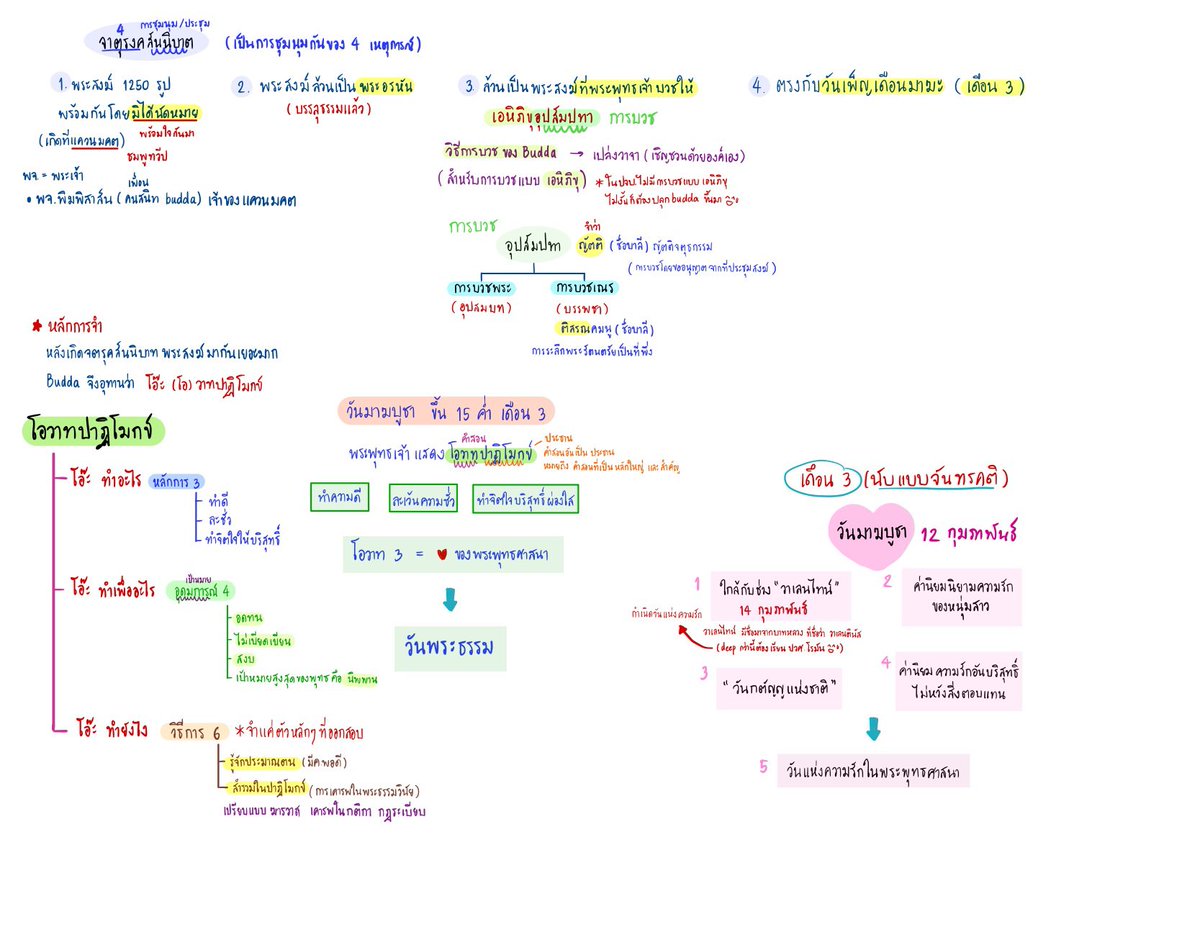 4 การชุมนุม/ประชุม
จาตุรงคสันนิบาต (เป็นการชุมนุมกันของ 4 เหตุการณ์)
1. พระสงฆ์ 1250 รูป
พร้อมกันโดยมิได้นัดหมาย
(เกิดที่แคว้นมคต) พร้อมใจกันมา
ชมพูทวีป
พจ. = พระเจ้า
เพื่อน
• พจ.พิมพิสาส์น (คนสนิท budda) เจ้าของแคว้นมคต
2. พระสงฆ์ล้วนเป็นพระอรหัน
(บรรลุธรรมแล้ว)
3. ล้วนเป็นพระสงฆ์ที่พระพุทธเจ้าบวชให้
เอหิภิขุอุปสัมปทา การบวช
วิธีการบวชของ Budda → เปล่งวาจา (เชิญชวนด้วยองค์เอง)
(สำหรับการบวชแบบ เอหิภิขุ) *ในปจบ.ไม่มีการบวชแบบ เอหิภิขุ
ไม่งั้นก็ต้องปลุก budda ขึ้นมา
4. ตรงกับวันเพ็ญเดือนมาฆะ (เดือน 3)
การบวช
อุปสัมปทา
จำว่า
ญัตติ (ชื่อบาลี) ญัตติจตุธกรรม
(การบวชโดยขออนุญาตจากที่ประชุมสงฆ์)
การบวชพระ
(อุปสมบท)
การบวชเณร
(บรรพชา)
ติสรณคมนู (ชื่อบาลี)
การระลึกพระรัตนตรัยเป็นที่พึ่ง
★ หลักการจำ
หลังเกิดจตุรคส์นนิบาท พระสงฆ์มากันเยอะมาก
Budda จึงอุทานว่า โอ๊ะ (โอ) วาทปาฏิโมกย์
โอวาทปาฏิโมกย์
โอ๊ะ ทำอะไร หลักการ 3
ทำดี
ละชั่ว
ทำจิตใจให้บริสุทธิ์
โอ๊ะ ทำเพื่ออะไร เป้าหมาย
อุดมการณ์ 4
อดทน
ไม่เบียดเบียน
สงบ
เป้าหมายสูงสุดของพุทธ คือ นิพพาน
โอ๊ะ ทำยังไง วิธีการ 6 *จำแค่ตัวหลักๆ ที่ออกสอบ
รู้จักประมาณตน (มีคพอดี)
สำรวมในปาฏิโมกย์ (การเคารพในพระธรรมวินัย)
เปรียบแบบ ฆารวาส เคารพในกติกา กฎระเบียบ
วันมาฆบูชา ขึ้น 15 ค่ำ เดือน 3
คำสอน
พระพุทธเจ้าแสดง โอวาทปาฏิโมกย์
ประธาน
คำสอนอันเป็น ประธาน
หมายถึง คำสอนที่เป็นหลักใหญ่ และ สำคัญ
ทำความดี
ละเว้นความชั่ว
ทำจิตใจบริสุทธิ์ผ่องใส
โอวาท 3 = ♥ ของพระพุทธศาสนา
วันพระธรรม
เดือน 3 (นับแบบจันทรคติ)
วันมาฆบูชา 12 กุมภาพันธ์
1 ใกล้กับช่วง "วาเลนไทน์"
14 กุมภาพันธ์
กำเนิดวันแห่งความรัก
วาเลนไทน์ มีชื่อมาจากบาทหลวง ที่ชื่อว่า วาเลนตินัส
(deep กว่านี้ต้องเรียน ปวศ โรมัน)
2 ค่านิยมนิยามความรัก
ของหนุ่มสาว
3 "วันกตัญญูแห่งชาติ"
4 ค่านิยม ความรักอันบริสุทธิ์
ไม่หวังสิ่งตอบแทน
5 วันแห่งความรักในพระพุทธศาสนา